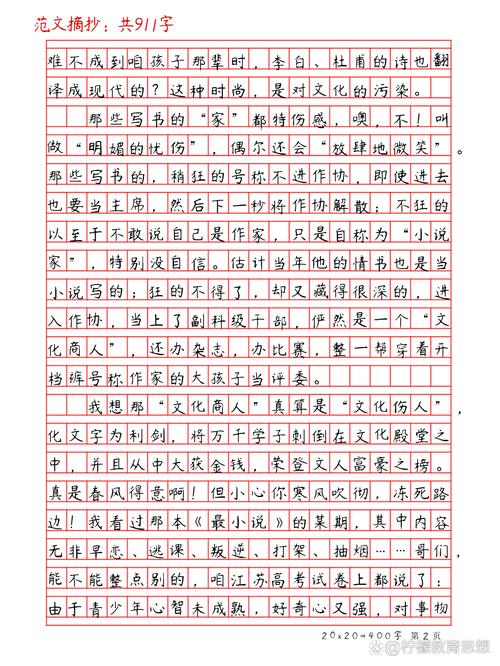 范文摘抄：共911字
难不成到咱孩子那辈时，李白、杜甫的诗也翻
译成现代的？这种时尚，是对文化的污染。
那些写书的“家”都特伤感，噢，不！叫
做“明媚的忧伤”，偶尔还会“放肆地微笑”。
那些写书的，稍狂的号称不进作协，即使进去
也要当主席，然后下一秒将作协解散；不狂的
以至于不敢说自己是作家，只是自称为“小说
家”，特别没自信。估计当年他的情书也是当
小说写的；狂的不得了，却又藏得很深的，进
入作协，当上了副科级干部，俨然是一个“文
化商人”，还办杂志，办比赛，整一帮穿着开
档裤号称作家的大孩子当评委。
我想那“文化商人”真算是“文化伤人”，
化文字为利剑，将万千学子刺倒在文化殿堂之
中，并且从中大获金钱，荣登文人富豪之榜。
真是春风得意啊！但小心你寒风吹彻，冻死路
边！我看过那本《最小说》的某期，其中内容
无非早恋、逃课、叛逆、打架、抽烟……哥们，
能不能整点别的，咱江苏高考试卷上都说了：
由于青少年心智未成熟，好奇心又强，对事物
20×20=400字 第2页
柠檬教育思想